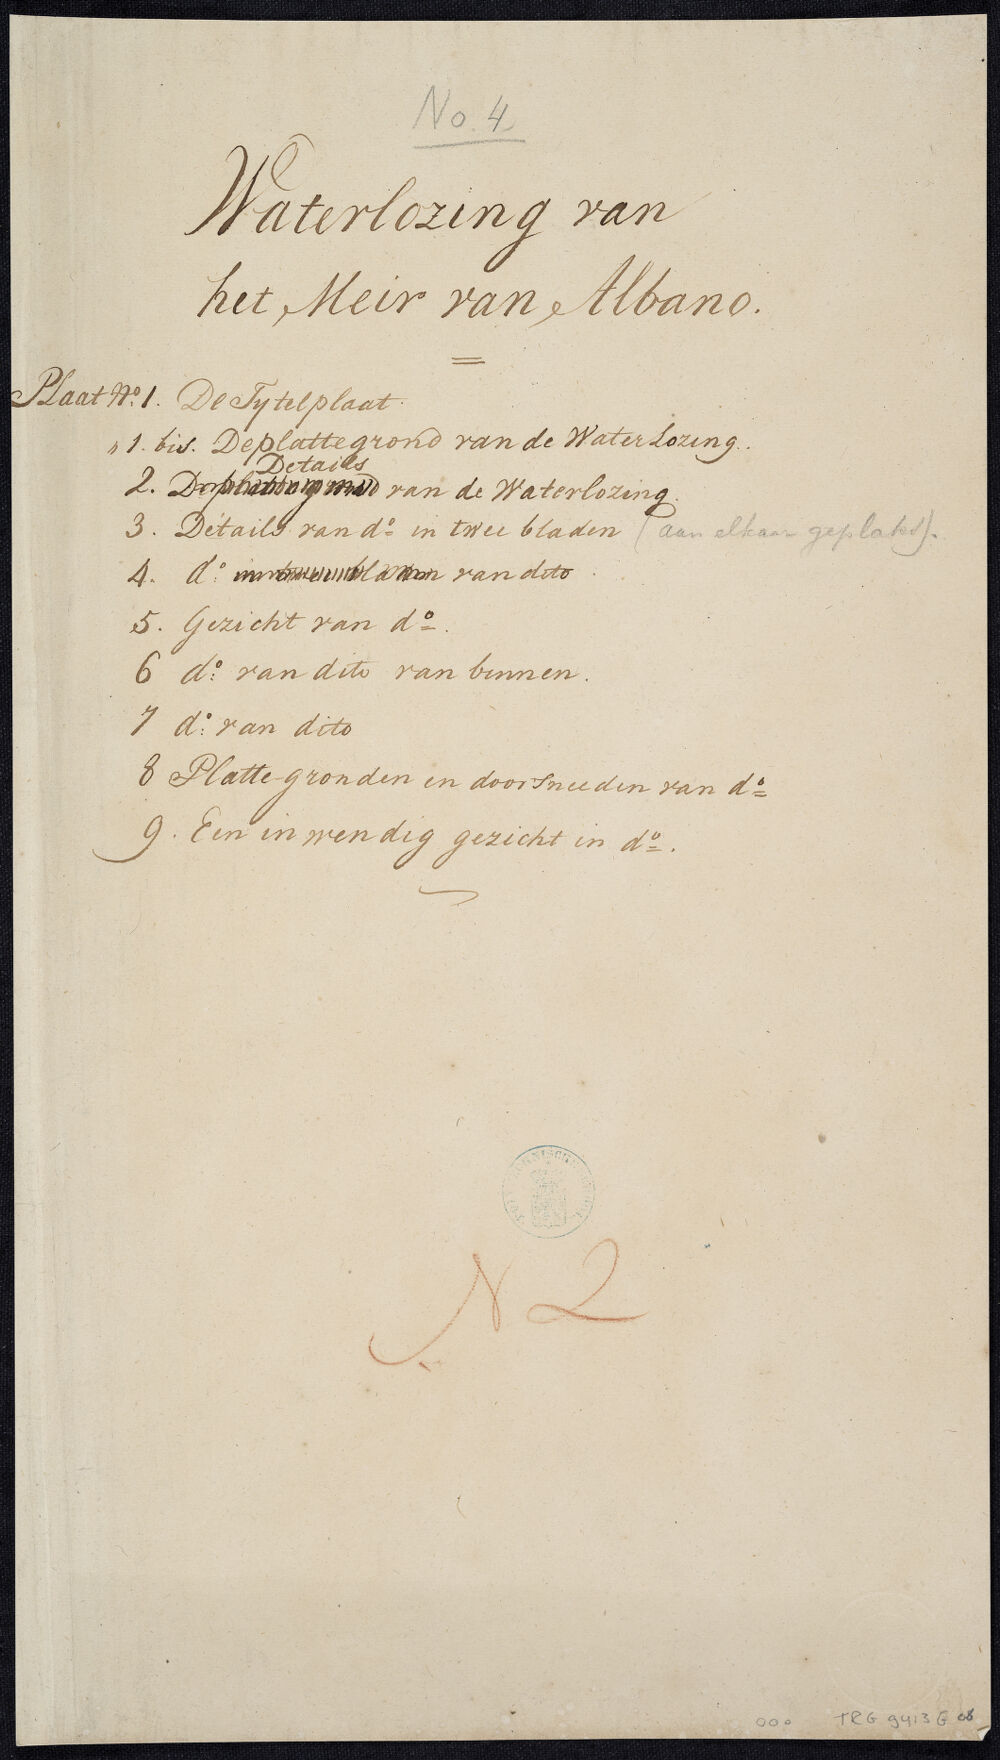 No. 4
Waterlozing van
het Meir van Albano.
Plaat No. 1. De Tytelplaat.
„ 1. bis. De plattegrond van de Waterlozing.
Details
2. De plattegrond van de Waterlozing.
3. Détails van do. in twee bladen (aan elkaar geplakt).
4. do. in twee bladen van dito.
5. Gezicht van do.
6 do. van dito van binnen.
7 do. van dito
8 Platte gronden en doorsneeden van do.
9. Een inwendig gezicht in do.
N 2
000 TRG 9413 G 08